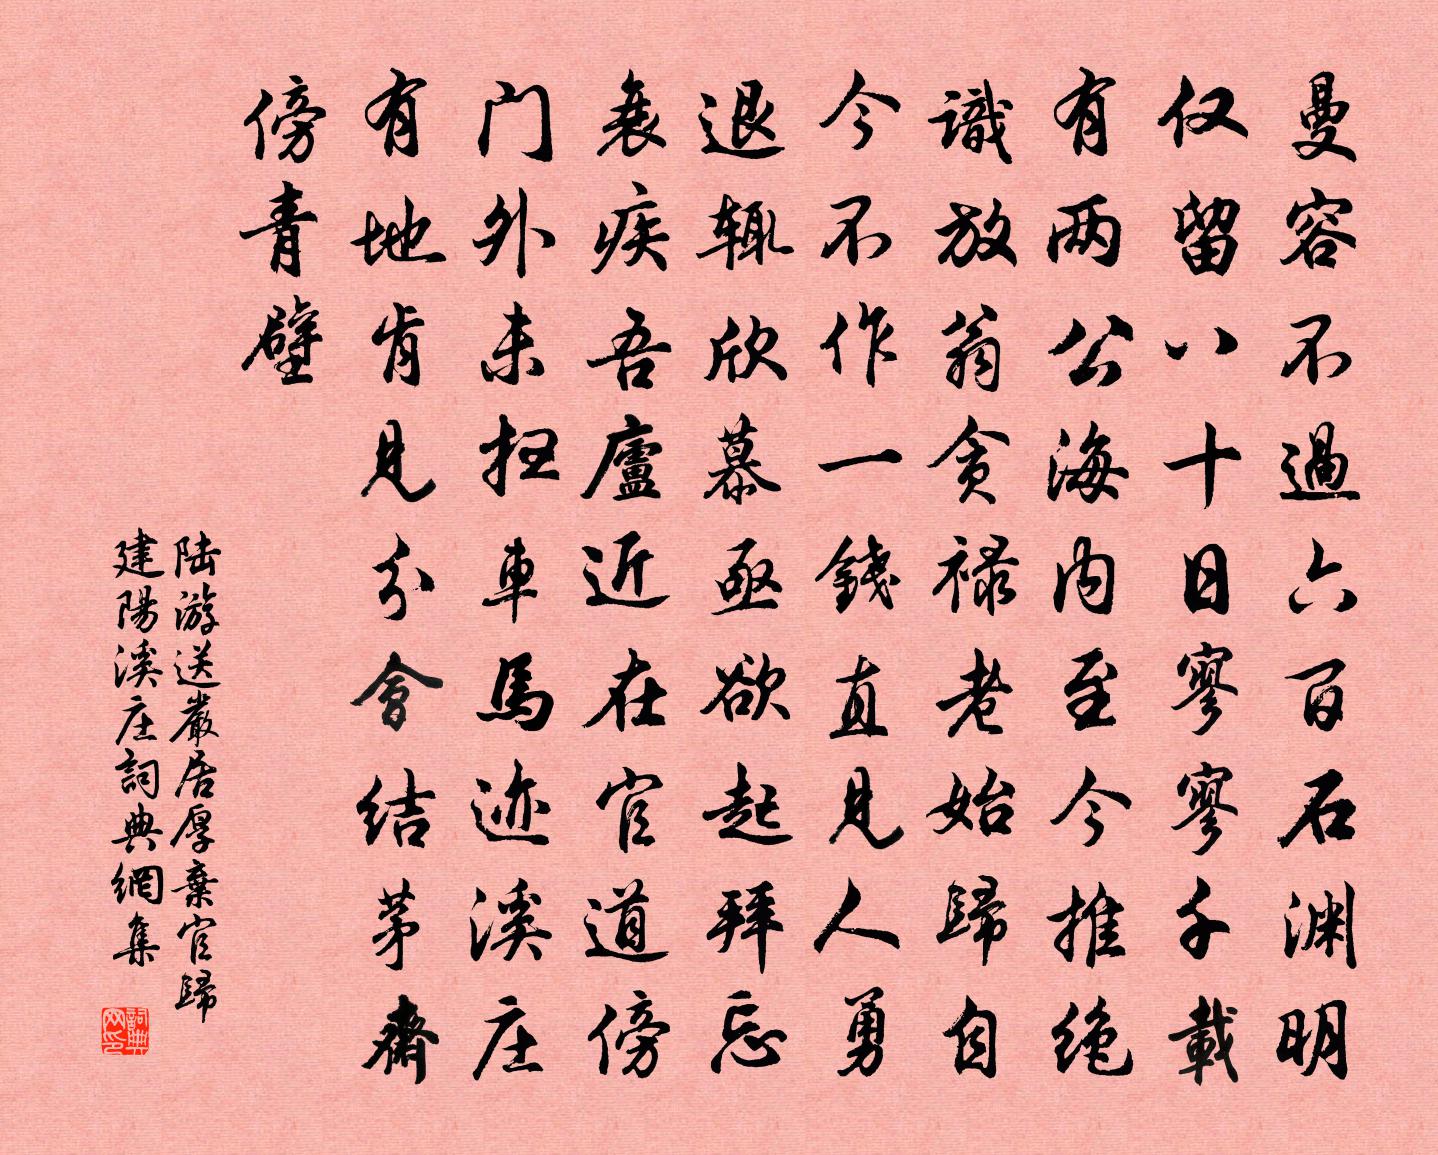 曼容不過六百石渊明
仅留八十日寥寥千載
有两公海内至今推绝
識放翁贪禄老始歸自
今不作一錢直見人勇
退辄欣慕亟欲起拜忘
衰疾吾廬近在官道傍
门外未扫車馬迹溪庄
有地肯見分會结茅齋
傍青壁
陆游送嚴居厚棄官歸
建陽溪庄詞典網集
詞典网印